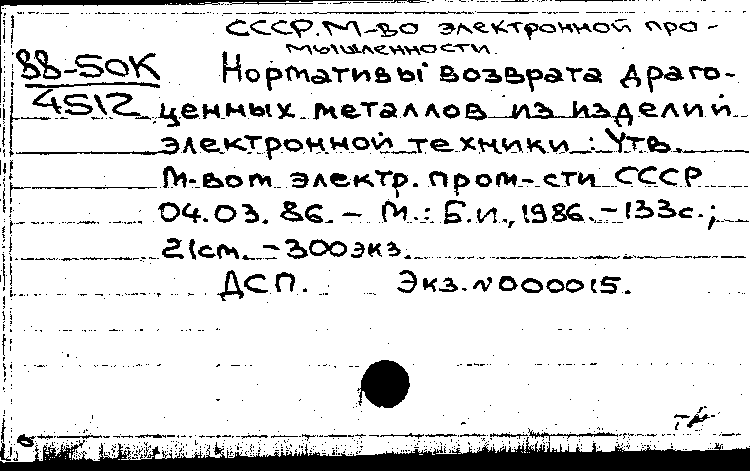 СССР. М-во электронной про-
мышленности.
88-50К
4512
Нормативы возврата драго-
ценных металлов из изделий
электронной техники : Утв.
М-вом электр. пром-сти СССР
04.03.86. – М.: Б.и., 1986. – 133с.;
21cm. – 300экз.
ДСП. Экз. N000015.